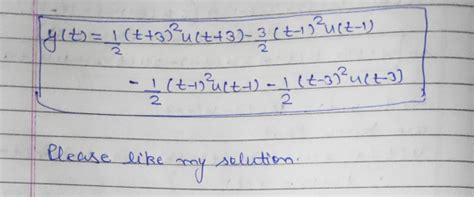 y(t) = 1/2 (t+3)²u(t+3) - 3/2 (t-1)²u(t-1)
- 1/2 (t-1)²u(t-1) - 1/2 (t-3)²u(t-3)
Please like my solution.